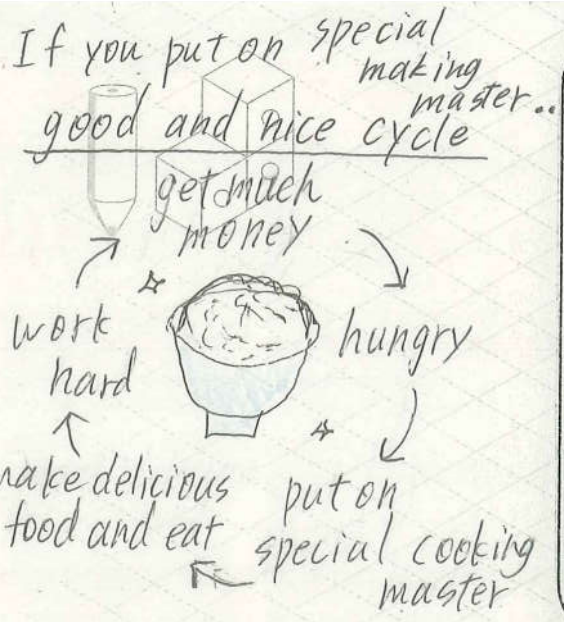 If you put on special
making
master..
good and nice cycle
get much
money
hungry
put on
special cooking
master
make delicious
food and eat
work
hard